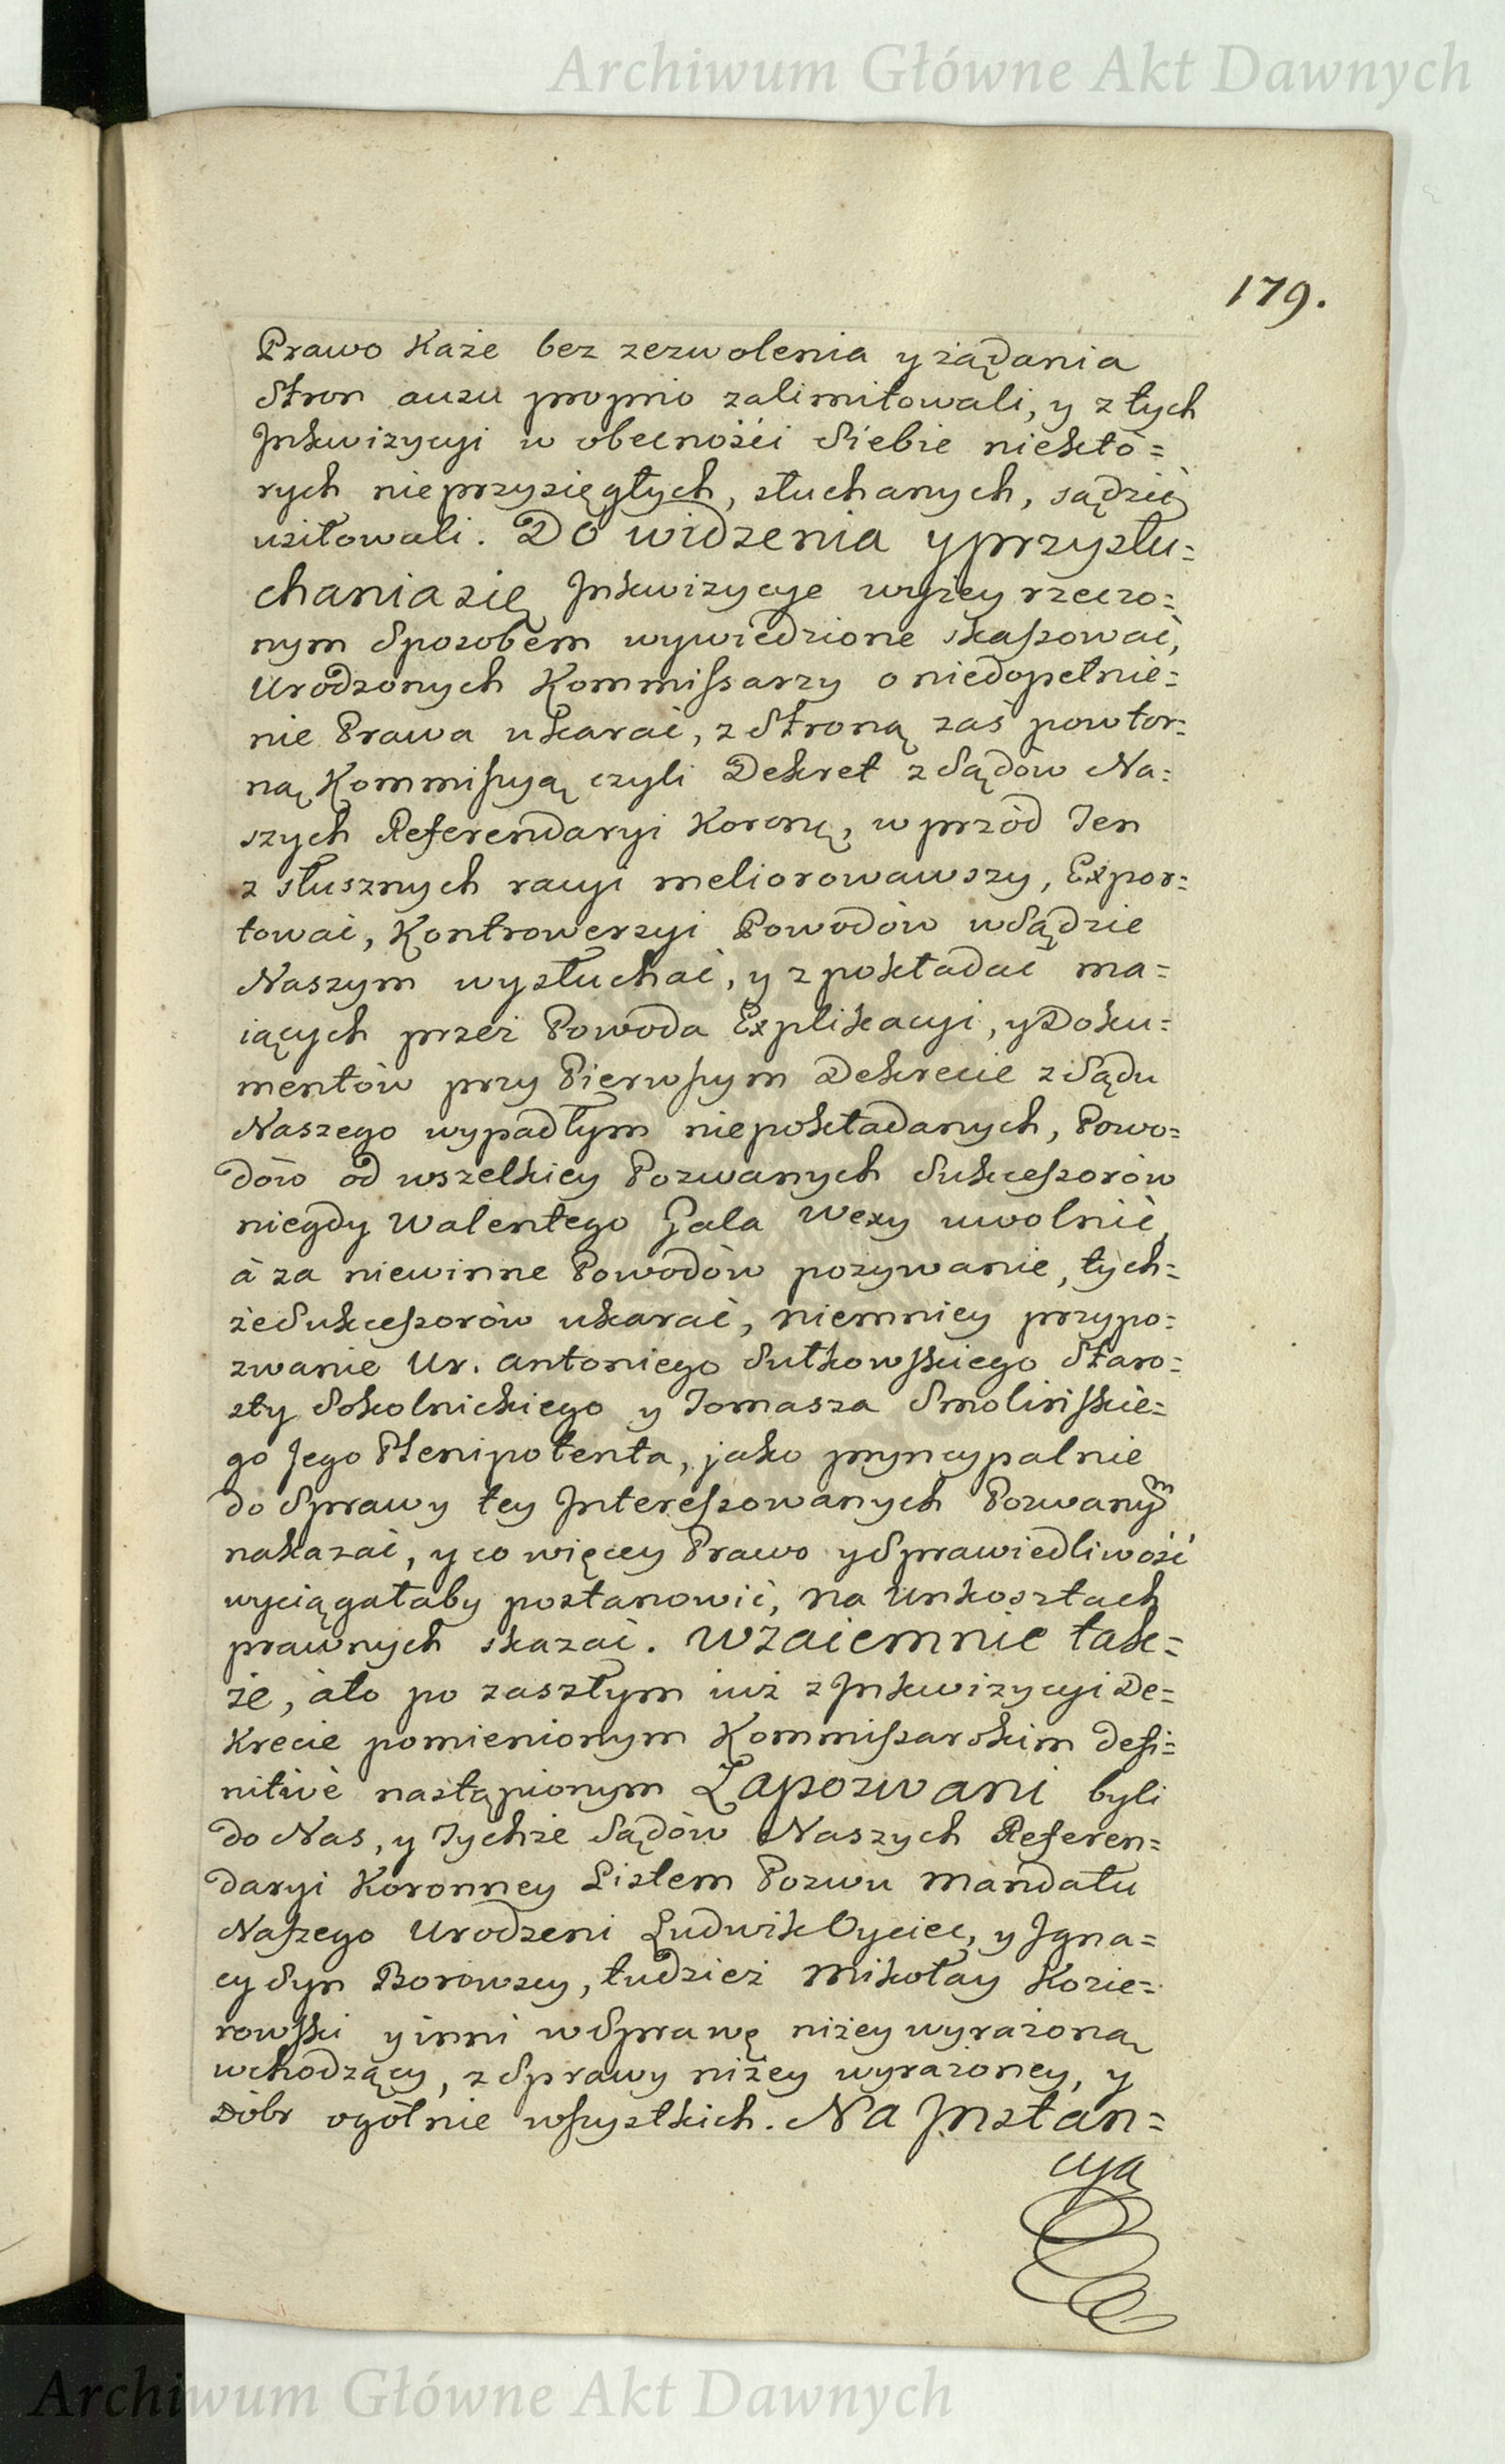 Archiwum Główne Akt Dawnych
179.
Prawo Każe bez zezwolenia y żądania
Stron ausu proprio zalimitowali, y z tych
Inkwizycyi w obecnośći Siebie niektó=
rych nieprzysięgłych, słuchanych, sądzić
usiłowali. Do widzenia y przysłu=
chania się Inkwizycye wyżey rzeczo=
nym Sposobem wywiedzione skassować,
Urodzonych Kommissarzy o niedopełnie=
nie Prawa ukarać, z Stroną zaś powtor=
ną Kommissyą czyli Dekret z Sądów Na=
szych Referendaryi Koronẏ, w przód Ten
z słusznych racyi meliorowawszy, Expor=
tować, Kontrowersyi Powodów w Sądzie
Naszym wysłuchać, y z pokładać ma=
iących przez Powoda Explikacyi, y Doku=
mentów przy Pierwszym Dekrecie z Sądu
Naszego wypadłym niepokładanych, Powo=
dów od wszelkiey Pozwanych Sukcessorów
niegdy Walentego Gala Wexy uwolnić,
à za niewinne Powodów pozywanie, tych=
że Sukcessorów ukarać, niemniey przypo=
zwanie Ur. Antoniego Sułkowskiego Staro=
sty Sokolnickiego y Tomasza Smolińskie=
go Jego Plenipotenta, jako pryncypalnie
do Sprawy tey Interessowanych Pozwanym
nakazać, y co więcey Prawo y Sprawiedliwość
wyciągałaby postanowić, na Unkosztach
prawnych skazać. Wzaiemnie tak=
że, àto po zaszłym iuż z Inkwizycyi De=
krecie pomienionym Kommissarskim defi=
nitivè nastąpionym Zapozwani byli
do Nas, y Tychże Sądów Naszych Referen=
daryi Koronney Listem Pozwu Mandatu
Naszego Urodzeni Ludwik Oyciec, y Igna=
cy Syn Borowscy, tudzież Mikołay Kozie=
rowski y inni w Sprawę niżey wyrażoną
wchodzący, z Sprawy niżey wyrażoney, y
Dóbr ogólnie wszystkich. Na Instan=
cyą
Archiwum Główne Akt Dawnych